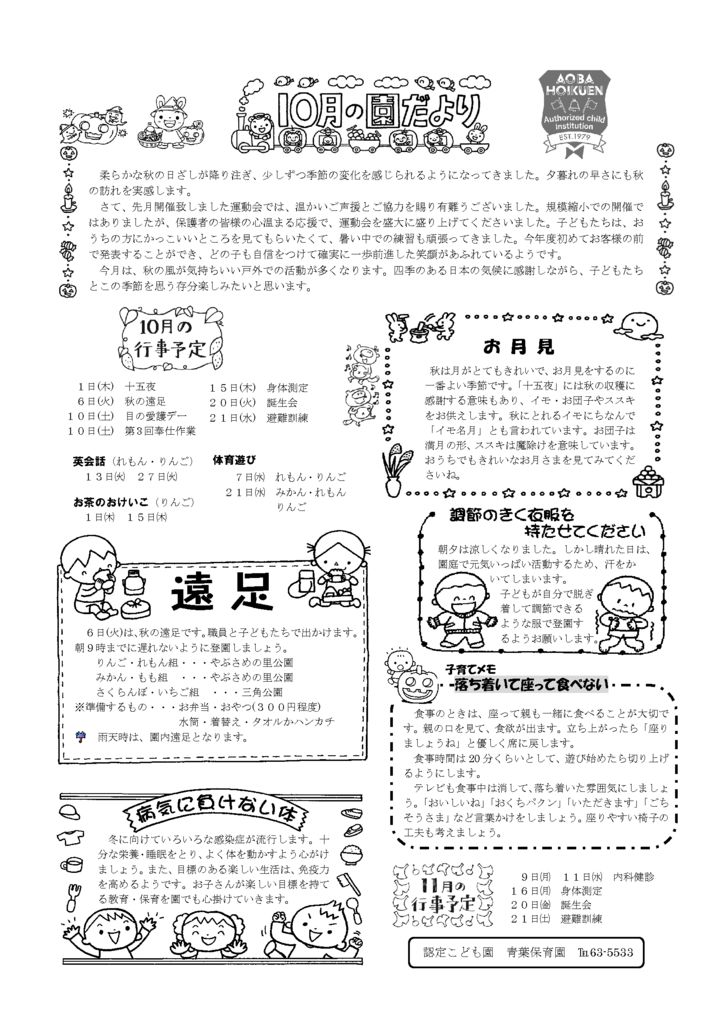 10月の園だより
AOBA
HOIKUEN
Authorized child
institution
EST.1979
柔らかな秋の日ざしが降り注ぎ、少しずつ季節の変化を感じられるようになってきました。夕暮れの早さにも秋
の訪れを実感します。
さて、先月開催致しました運動会では、温かいご声援とご協力を賜り有難うございました。規模縮小での開催で
はありましたが、保護者の皆様の心温まる応援で、運動会を盛大に盛り上げてくださいました。子どもたちは、お
うちの方にかっこいいところを見てもらいたくて、暑い中での練習も頑張ってきました。今年度初めてお客様の前
で発表することができ、どの子も自信をつけて確実に一歩前進した笑顔があふれているようです。
今月は、秋の風が気持ちいい戸外での活動が多くなります。四季のある日本の気候に感謝しながら、子どもたち
とこの季節を思う存分楽しみたいと思います。
10月の
行事予定
1日(木) 十五夜
6日(火) 秋の遠足
10日(土) 目の愛護デー
10日(土) 第3回奉仕作業
15日(木) 身体測定
20日(火) 誕生会
21日(水) 避難訓練
英会話(れもん・りんご)
13日(火) 27日(火)
お茶のおけいこ(りんご)
1日(木) 15日(木)
体育遊び
7日(水) れもん・りんご
21日(水) みかん・れもん
りんご
お月見
秋は月がとてもきれいで、お月見をするのに
一番よい季節です。「十五夜」には秋の収穫に
感謝する意味もあり、イモ・お団子やススキ
をお供えします。秋にとれるイモにちなんで
「イモ名月」とも言われています。お団子は
満月の形、ススキは魔除けを意味しています。
おうちでもきれいなお月さまを見てみてくだ
さいね。
調節のきく衣服を
持たせてください
朝夕は涼しくなりました。しかし晴れた日は、
園庭で元気いっぱい活動するため、汗をか
いてしまいます。
子どもが自分で脱ぎ
着して調節できる
ような服で登園す
るようお願いします。
遠足
6日(火)は、秋の遠足です。職員と子どもたちで出かけます。
朝9時までに遅れないように登園しましょう。
りんご・れもん組 ・・・やぶさめの里公園
みかん・もも組 ・・・やぶさめの里公園
さくらんぼ・いちご組 ・・・三角公園
※準備するもの・・・お弁当・おやつ(300円程度)
水筒・着替え・タオルかハンカチ
雨天時は、園内遠足となります。
子育てメモ
落ち着いて座って食べない
食事のときは、座って親も一緒に食べることが大切で
す。親の口を見て、食欲が出ます。立ち上がったら「座り
ましょうね」と優しく席に戻します。
食事時間は20分くらいとして、遊び始めたら切り上げ
るようにします。
テレビも食事中は消して、落ち着いた雰囲気にしましょ
う。「おいしいね」「おくちパクン」「いただきます」「ごち
そうさま」など言葉かけをしましょう。座りやすい椅子の
工夫も考えましょう。
病気に負けない体
冬に向けていろいろな感染症が流行します。十
分な栄養・睡眠をとり、よく体を動かすよう心がけ
ましょう。また、目標のある楽しい生活は、免疫力
を高めるようです。お子さんが楽しい目標を持て
る教育・保育を園でも心掛けていきます。
11月の
行事予定
9日(月) 11日(水) 内科健診
16日(月) 身体測定
20日(金) 誕生会
21日(土) 避難訓練
認定こども園 青葉保育園 ℡63-5533